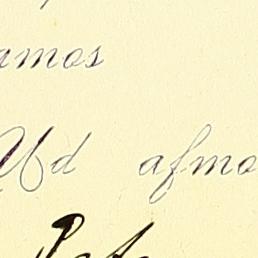 amos
Ud afmo